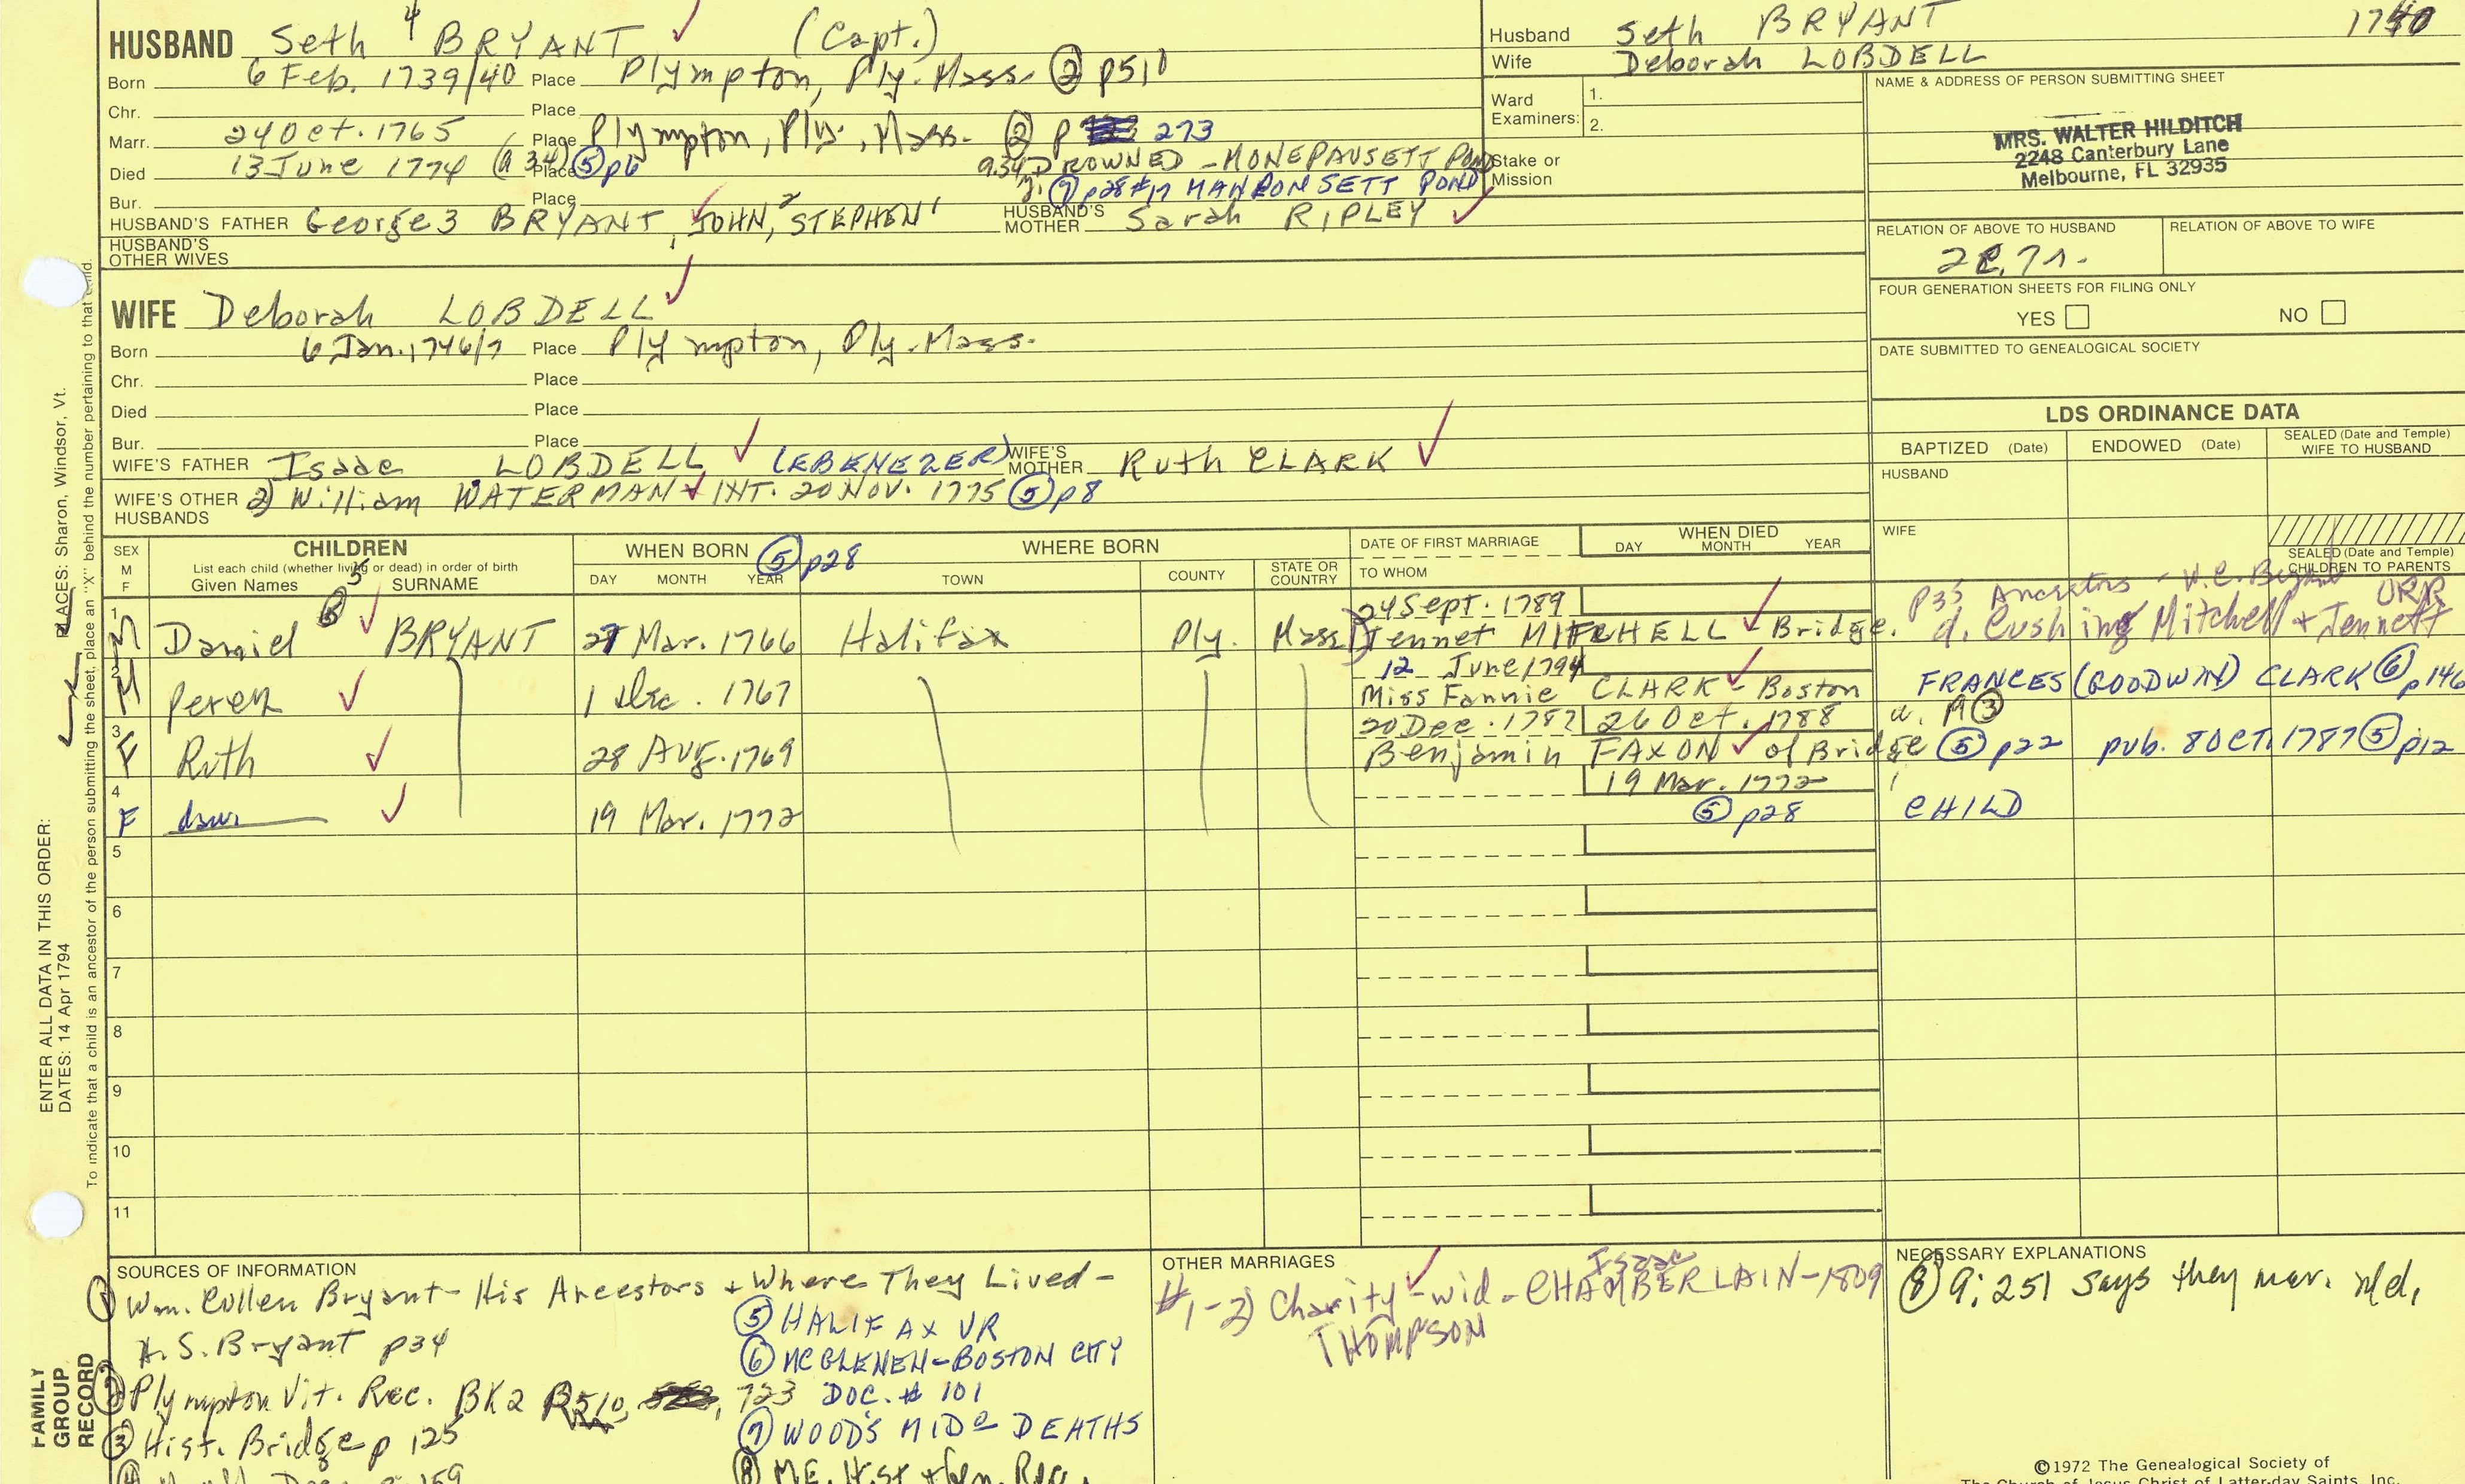 HUSBAND Seth 4 BRYANT (Capt.)
Born 6 Feb. 1739/40 Place Plympton, Ply. Mass. ② p510
Chr. Place
Marr. 24 Oct. 1765 Place Plympton, Ply., Mass. ② p 273
Died 13 June 1774 (a 34) Place ⑤ p6 a.34 DROWNED - MONEPAUSETT POND
⑦ p28 #17 MANPONSETT POND
Bur. Place
HUSBAND'S FATHER George3 BRYANT, JOHN,2 STEPHEN1 HUSBAND'S MOTHER Sarah RIPLEY
HUSBAND'S OTHER WIVES
Husband Seth BRYANT 1740
Wife Deborah LOBDELL
Ward Examiners: 1.
2.
Stake or Mission
NAME & ADDRESS OF PERSON SUBMITTING SHEET
MRS. WALTER HILDITCH
2248 Canterbury Lane
Melbourne, FL 32935
RELATION OF ABOVE TO HUSBAND RELATION OF ABOVE TO WIFE
FOUR GENERATION SHEETS FOR FILING ONLY
YES NO
DATE SUBMITTED TO GENEALOGICAL SOCIETY
WIFE Deborah LOBDELL
Born 6 Jan. 1746/7 Place Plympton, Ply. Mass.
Chr. Place
Died Place
Bur. Place
WIFE'S FATHER Isaac LOBDELL (EBENEZER) WIFE'S MOTHER Ruth CLARK
WIFE'S OTHER HUSBANDS 2) William WATERMAN INT. 20 NOV. 1775 ⑤ p8
LDS ORDINANCE DATA
BAPTIZED (Date) ENDOWED (Date) SEALED (Date and Temple) WIFE TO HUSBAND
HUSBAND
WIFE
SEALED (Date and Temple) CHILDREN TO PARENTS
SEX M F CHILDREN
List each child (whether living or dead) in order of birth
Given Names SURNAME
WHEN BORN ⑤ p28 WHERE BORN
DAY MONTH YEAR TOWN COUNTY STATE OR COUNTRY
DATE OF FIRST MARRIAGE
TO WHOM
WHEN DIED
DAY MONTH YEAR
1 M Daniel 5 BRYANT 27 Mar. 1766 Halifax Ply. Mass 24 Sept. 1789
Jennet MITCHELL - Bridge. p33 Ancestors - W.C. Bryant
d. Cushing Mitchell + Jennett ORR
2 M Perez 1 Dec. 1767 12 June 1794
Miss Fannie CLARK - Boston FRANCES (GOODWIN) CLARK ⑥ p146
3 F Ruth 28 AUG. 1769 20 Dec. 1787 26 Oct. 1788
Benjamin FAXON of Bridge ⑤ p22 pub. 8 OCT. 1787 ⑤ p12
4 F dau. 19 Mar. 1772 19 Mar. 1772
⑤ p28 CHILD
5
6
7
8
9
10
11
SOURCES OF INFORMATION
① Wm. Cullen Bryant - His Ancestors + Where They Lived -
H. S. Bryant p34
② Plympton Vit. Rec. BK2 P510, 723
③ Hist. Bridge p 125
⑤ HALIFAX VR
⑥ MCGLENEN - BOSTON CITY
DOC. # 101
⑦ WOOD'S MIDO DEATHS
OTHER MARRIAGES
#1-2) Charity - wid. Isaac CHAMBERLAIN - 1809
THOMPSON
NECESSARY EXPLANATIONS
⑧ 9; 251 says they mar. n/d,
©1972 The Genealogical Society of
The Church of Jesus Christ of Latter-day Saints, Inc.
ENTER ALL DATA IN THIS ORDER:
PLACES: Sharon, Windsor, Vt.
DATES: 14 Apr 1794
To indicate that a child is an ancestor of the person submitting the sheet, place an "X" behind the number pertaining to that child.
FAMILY GROUP RECORD